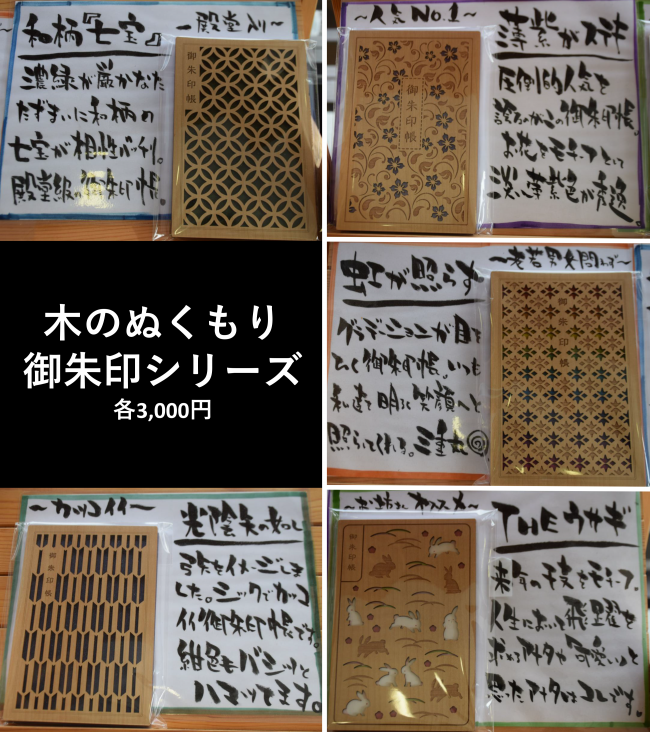 和柄『七宝』
~殿堂入り~
濃緑が厳かなた
たずまいに和柄の
七宝が相性バッチリ。
殿堂級の御朱印帳
御朱印帳
~人気No.1~
薄紫がステキ
圧倒的人気を
誇るのがこの御朱印帳。
お花をモチーフとして
淡い薄紫色が秀逸
御朱印帳
木のぬくもり
御朱印シリーズ
各3,000円
~老若男女問わず~
虹が照らす
グラデーションが目を
ひく御朱印帳。いつも
私達を明るく笑顔へと
照らしてくれる。
御朱印帳
~カッコイイ~
光陰矢の如し
弓矢をイメージしま
した。シックでカッコ
イイ御朱印帳です。
紺色もバシッと
ハマッてます。
御朱印帳
オススメ~
THEウサギ
来年の干支をモチーフ。
人生において飛躍を
求めるアナタや可愛いっと
思ったアナタはコレです。
御朱印帳